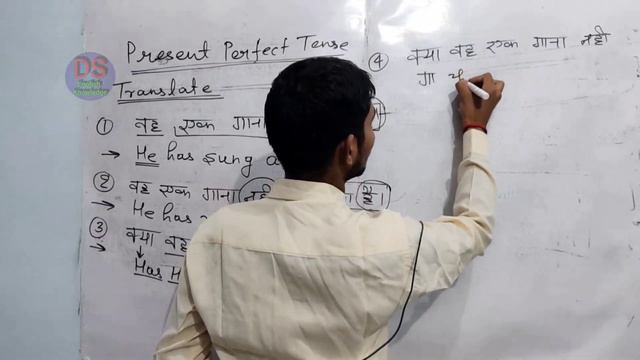 DS
English
Knowledge
Present Perfect Tense
Translate
① वह एक गाना
→ He has sung
② वह एक गाना नही है।
→ He has
③ क्या वह
→ Has
④ क्या वह एक गाना नही
गा